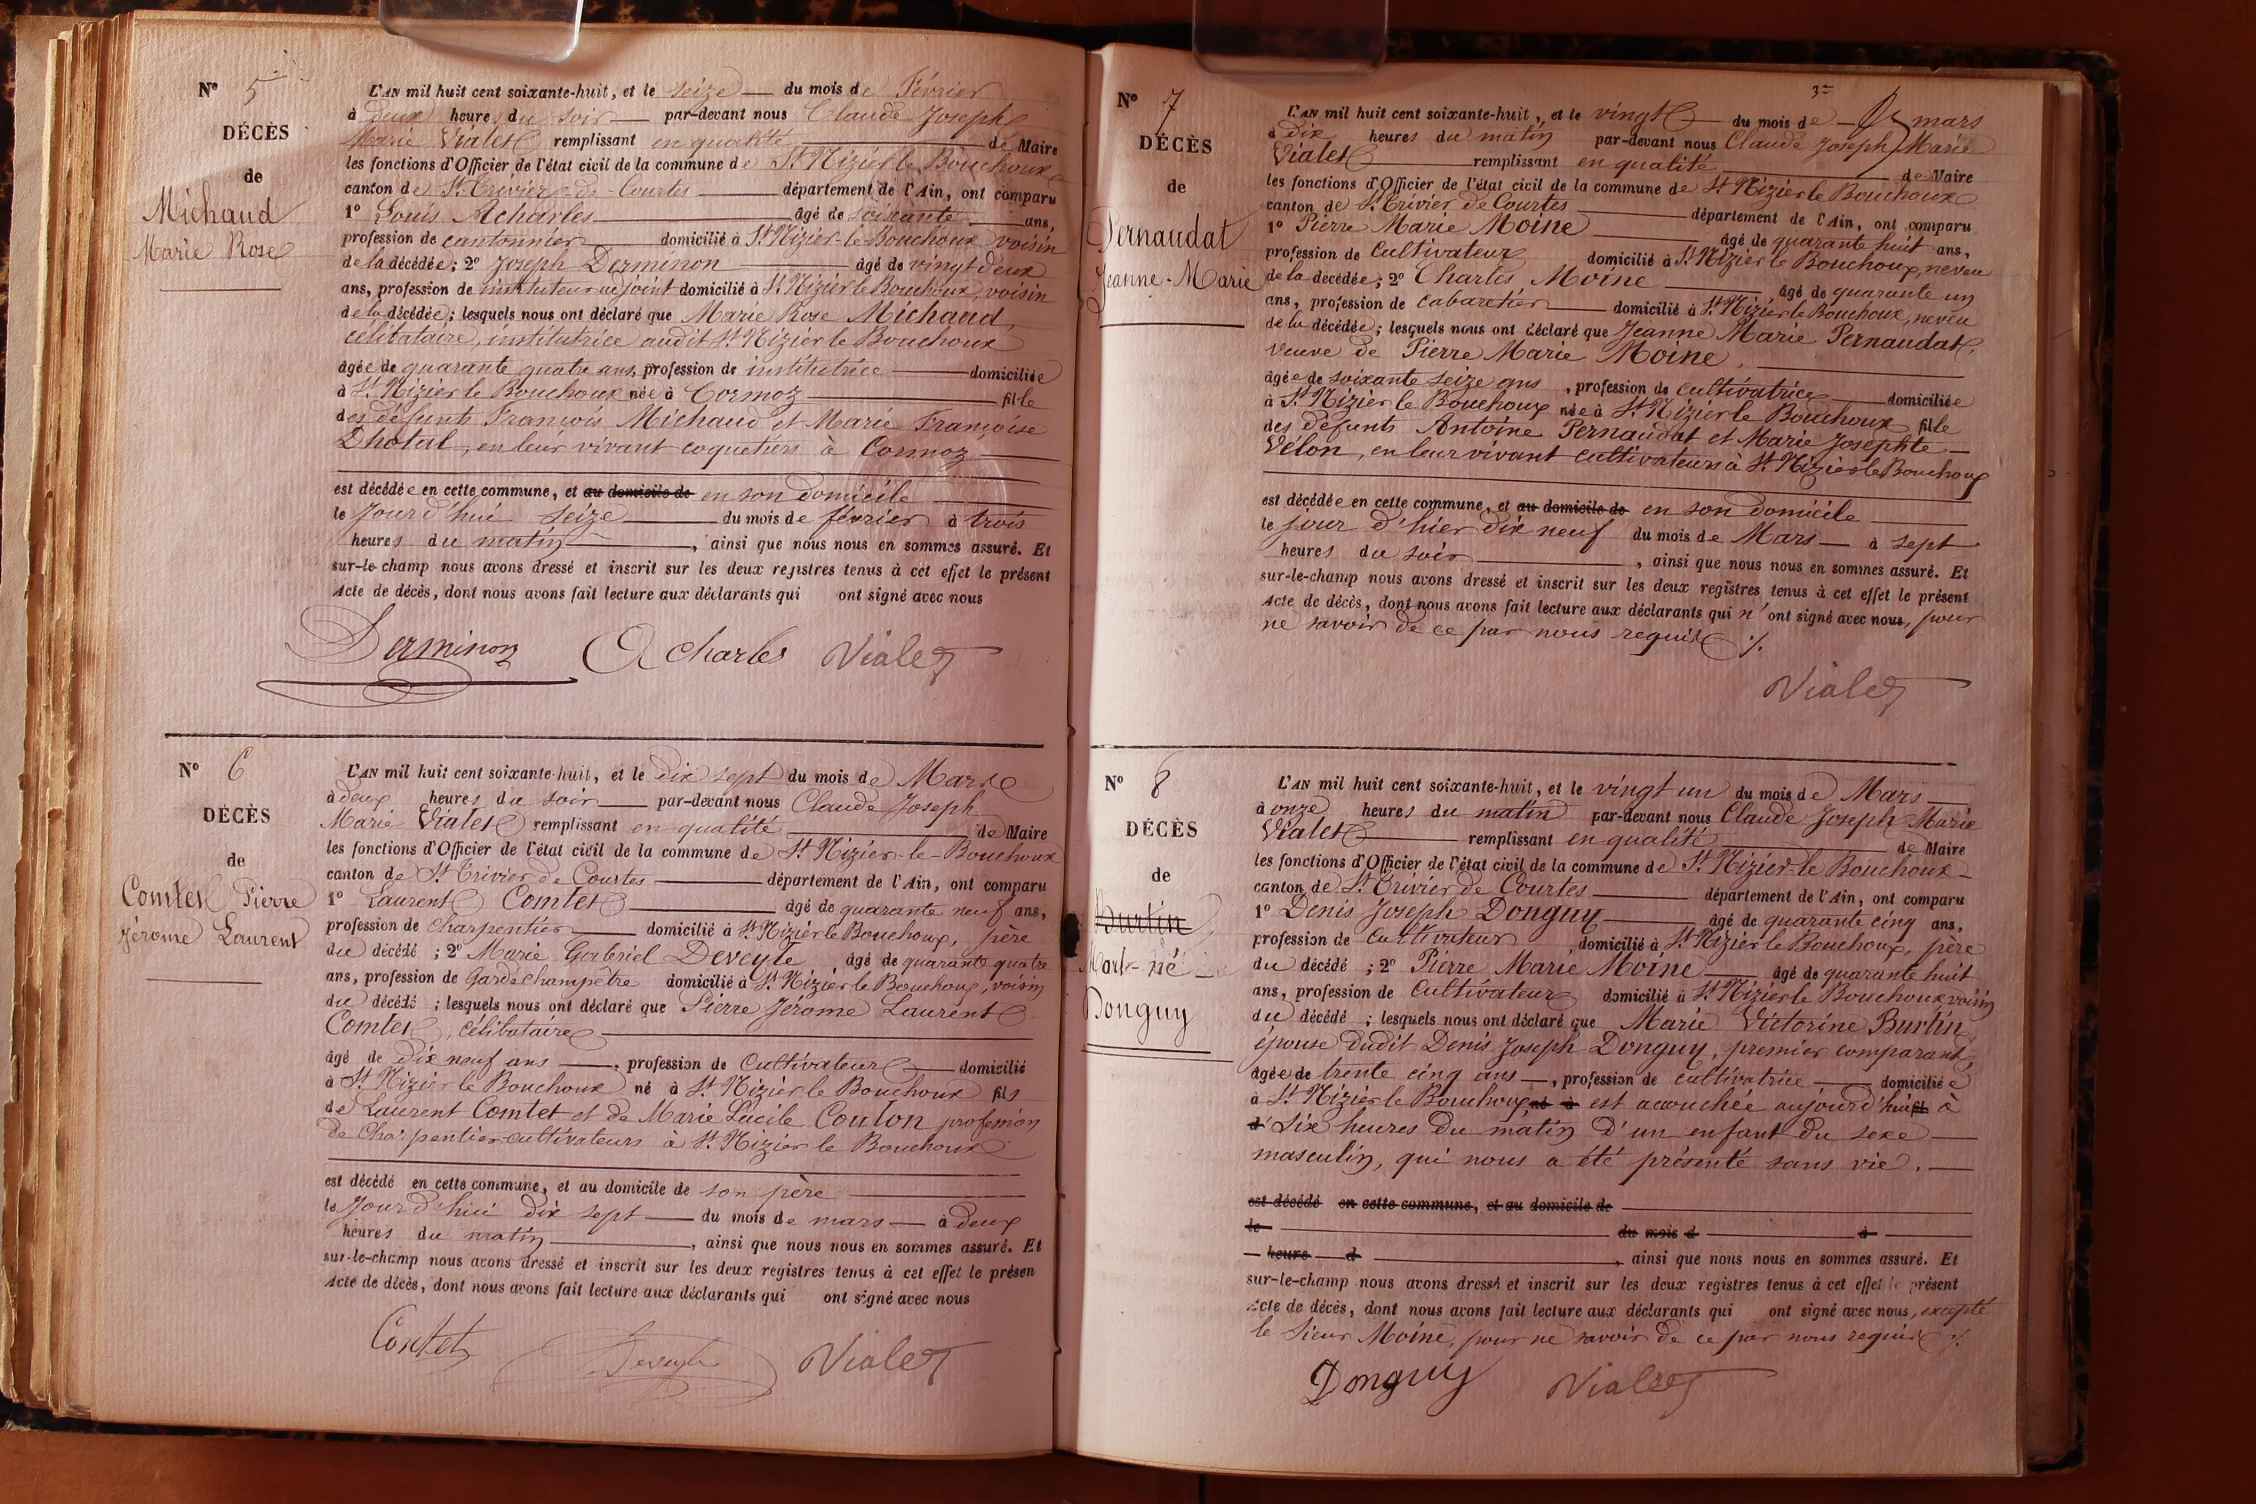 Nº 5
DÉCÈS
de
Michaud
Marie Rose
L'AN mil huit cent soixante-huit, et le seize du mois de Février
à deux heures du soir par-devant nous Claude Joseph
Marie Vialet remplissant en qualité de Maire
les fonctions d'Officier de l'état civil de la commune de St Nizier le Bouchoux
canton de St Trivier-de-Courtes département de l'Ain, ont comparu
1º Louis Acharles âgé de soixante ans,
profession de cantonnier domicilié à St Nizier-le-Bouchoux voisin
de la décédée; 2º Joseph Derminon âgé de vingt deux
ans, profession de instituteur adjoint domicilié à St Nizier le Bouchoux, voisin
de la décédée; lesquels nous ont déclaré que Marie Rose Michaud,
célibataire, institutrice audit St Nizier le Bouchoux
âgée de quarante quatre ans, profession de institutrice domiciliée
à St Nizier le Bouchoux née à Cormoz fille
des défunts François Michaud et Marie Françoise
Dhotal, en leur vivant coquetiers à Cormoz
est décédée en cette commune, et au domicile de en son domicile
le jourd'hui seize du mois de février à trois
heures du matin, ainsi que nous nous en sommes assuré. Et
sur-le-champ nous avons dressé et inscrit sur les deux registres tenus à cet effet le présent
Acte de décès, dont nous avons fait lecture aux déclarants qui ont signé avec nous
Derminon Acharles Vialet
Nº 6
DÉCÈS
de
Comtet Pierre
Jérome Laurent
L'AN mil huit cent soixante-huit, et le dix sept du mois de Mars
à deux heures du soir par-devant nous Claude Joseph
Marie Vialet remplissant en qualité de Maire
les fonctions d'Officier de l'état civil de la commune de St Nizier-le-Bouchoux
canton de St Trivier de Courtes département de l'Ain, ont comparu
1º Laurent Comtet âgé de quarante neuf ans,
profession de charpentier domicilié à St Nizier le Bouchoux, père
du décédé; 2º Marie Gabriel Deveyle âgé de quarante quatre
ans, profession de Garde Champêtre domicilié à St Nizier le Bouchoux, voisin
du décédé; lesquels nous ont déclaré que Pierre Jérome Laurent
Comtet, célibataire
âgé de dix neuf ans, profession de Cultivateur domicilié
à St Nizier le Bouchoux né à St Nizier le Bouchoux fils
de Laurent Comtet et de Marie Lucile Coulon profession
de Charpentier cultivateurs à St Nizier le Bouchoux
est décédé en cette commune, et au domicile de son père
le jourd'hui dix sept du mois de mars à deux
heures du matin, ainsi que nous nous en sommes assuré. Et
sur-le-champ nous avons dressé et inscrit sur les deux registres tenus à cet effet le présen
Acte de décès, dont nous avons fait lecture aux déclarants qui ont signé avec nous
Comtet Deveyle Vialet
Nº 7
DÉCÈS
de
Pernaudat
Jeanne-Marie
L'AN mil huit cent soixante-huit, et le vingt du mois de mars
à dix heures du matin par-devant nous Claude Joseph Marie
Vialet remplissant en qualité de Maire
les fonctions d'Officier de l'état civil de la commune de St Nizier le Bouchoux
canton de St Trivier de Courtes département de l'Ain, ont comparu
1º Pierre Marie Moine âgé de quarante huit ans,
profession de Cultivateur domicilié à St Nizier le Bouchoux, neveu
de la décédée; 2º Charles Moine âgé de quarante un
ans, profession de cabaretier domicilié à St Nizier le Bouchoux, neveu
de la décédée; lesquels nous ont déclaré que Jeanne Marie Pernaudat,
veuve de Pierre Marie Moine,
âgée de soixante seize ans, profession de cultivatrice domiciliée
à St Nizier le Bouchoux née à St Nizier le Bouchoux fille
des défunts Antoine Pernaudat et Marie Josephte
Vélon, en leur vivant cultivateurs à St Nizier le Bouchoux
est décédée en cette commune, et au domicile de en son domicile
le jour d'hier dix neuf du mois de Mars à sept
heures du soir, ainsi que nous nous en sommes assuré. Et
sur-le-champ nous avons dressé et inscrit sur les deux registres tenus à cet effet le présent
Acte de décès, dont nous avons fait lecture aux déclarants qui n'ont signé avec nous, pour
ne savoir de ce par nous requis ./.
Vialet
Nº 8
DÉCÈS
de
Burtin
Mort-né
Donguy
L'AN mil huit cent soixante-huit, et le vingt un du mois de Mars
à onze heures du matin par-devant nous Claude Joseph Marie
Vialet remplissant en qualité de Maire
les fonctions d'Officier de l'état civil de la commune de St Nizier-le Bouchoux
canton de St Trivier de Courtes département de l'Ain, ont comparu
1º Denis Joseph Donguy âgé de quarante cinq ans,
profession de Cultivateur domicilié à St Nizier le Bouchoux, père
du décédé; 2º Pierre Marie Moine âgé de quarante huit
ans, profession de Cultivateur domicilié à St Nizier le Bouchoux voisin
du décédé; lesquels nous ont déclaré que Marie Victorine Burtin
épouse dudit Denis Joseph Donguy, premier comparant,
âgée de trente cinq ans, profession de cultivatrice domiciliée
à St Nizier le Bouchoux né à est accouchée aujourd'hui fil à
d dix heures du matin d'un enfant du sexe
masculin, qui nous a été présenté sans vie.
est décédé en cette commune, et au domicile de
le du mois d à
heure d, ainsi que nous nous en sommes assuré. Et
sur-le-champ nous avons dressé et inscrit sur les deux registres tenus à cet effet le présent
Acte de décès, dont nous avons fait lecture aux déclarants qui ont signé avec nous, excepté
le sieur Moine, pour ne savoir de ce par nous requis ./.
Donguy Vialet